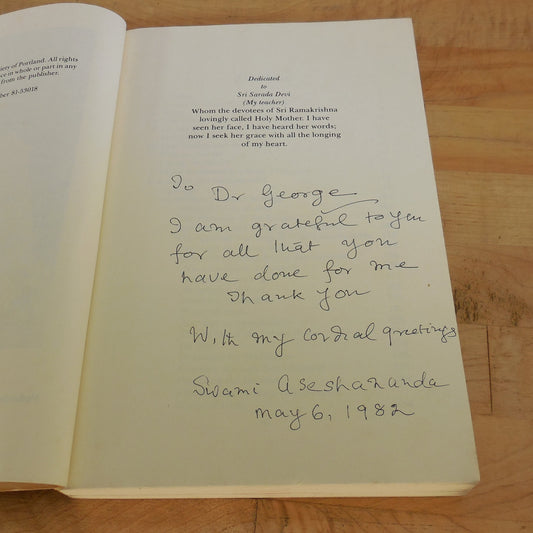 iety of Portland. All rights
ce in whole or part in any
from the publisher.
ber 81-53018
Dedicated
to
Sri Sarada Devi
(My teacher)
Whom the devotees of Sri Ramakrishna
lovingly called Holy Mother. I have
seen her face, I have heard her words;
now I seek her grace with all the longing
of my heart.
To Dr George
I am grateful to you
for all that you
have done for me
Thank you
With my cordial greetings
Swami Aseshananda
May 6, 1982